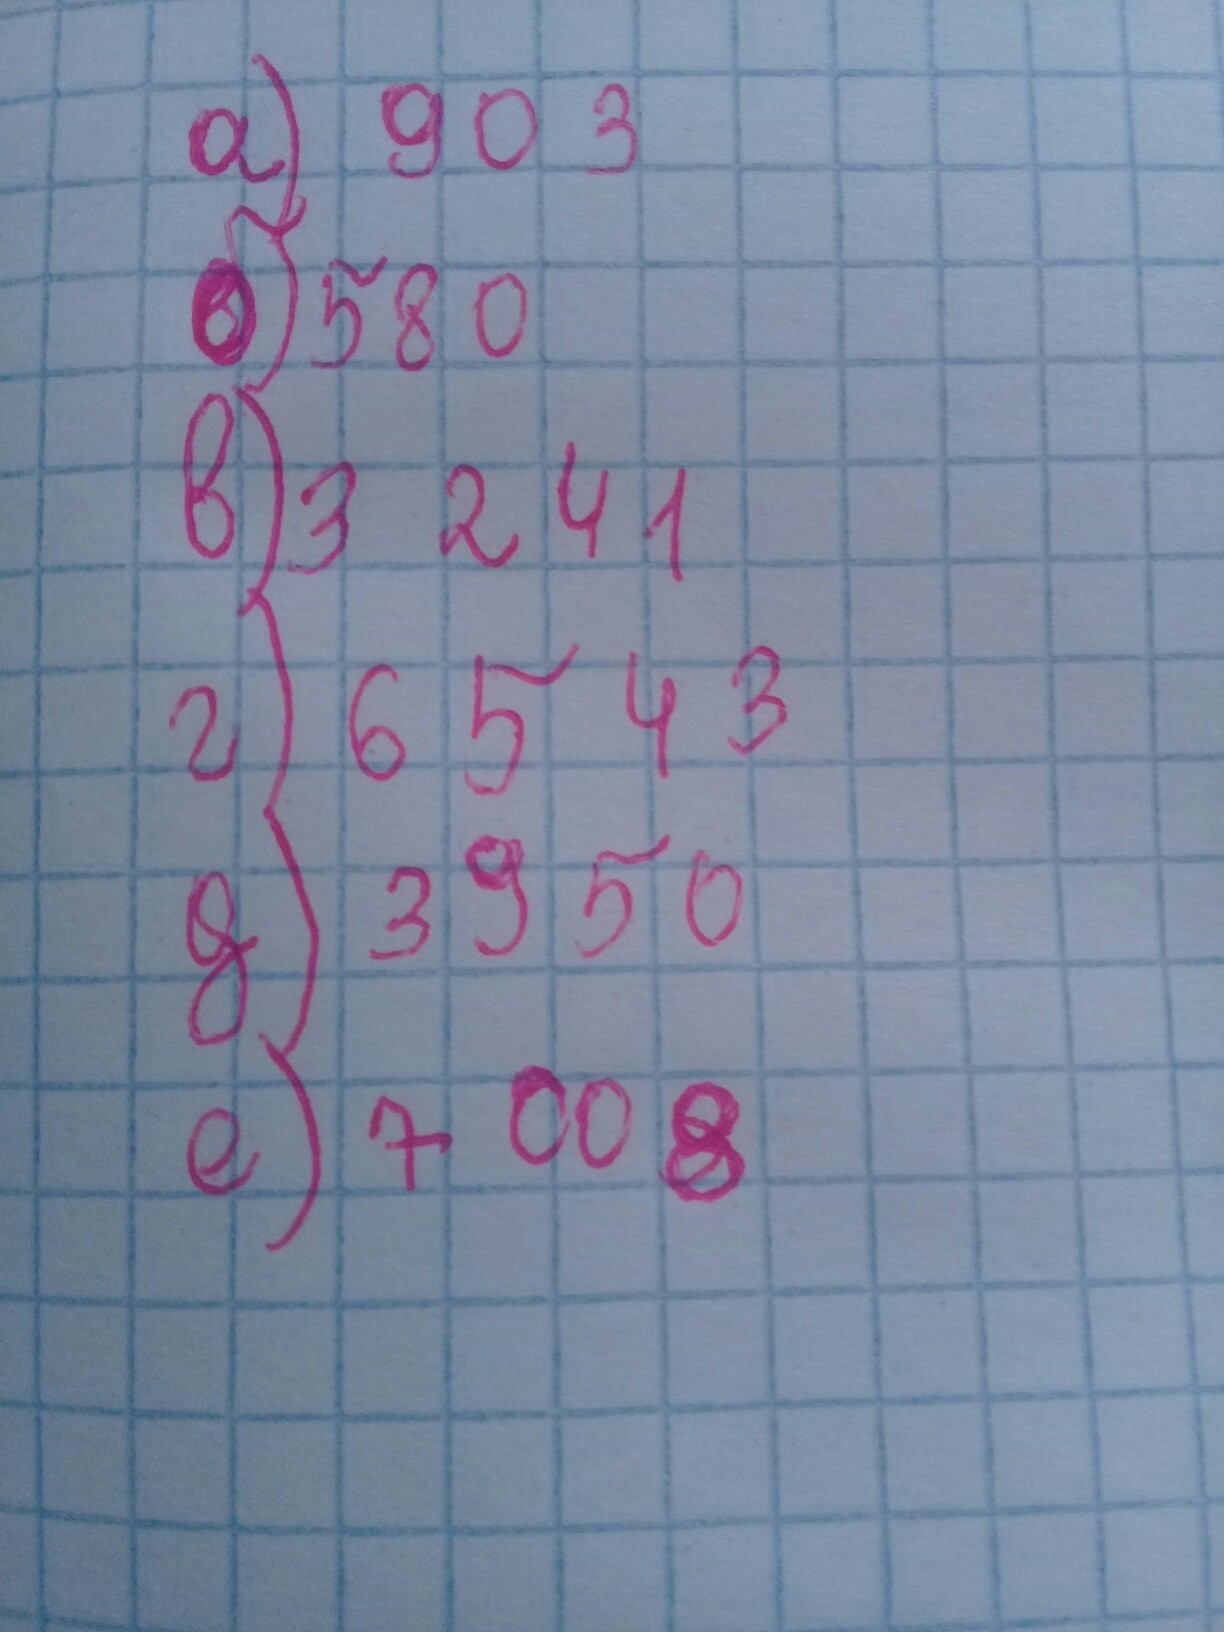 а) 903
б) 580
в) 3 241
г) 6 543
д) 3950
е) 7 008